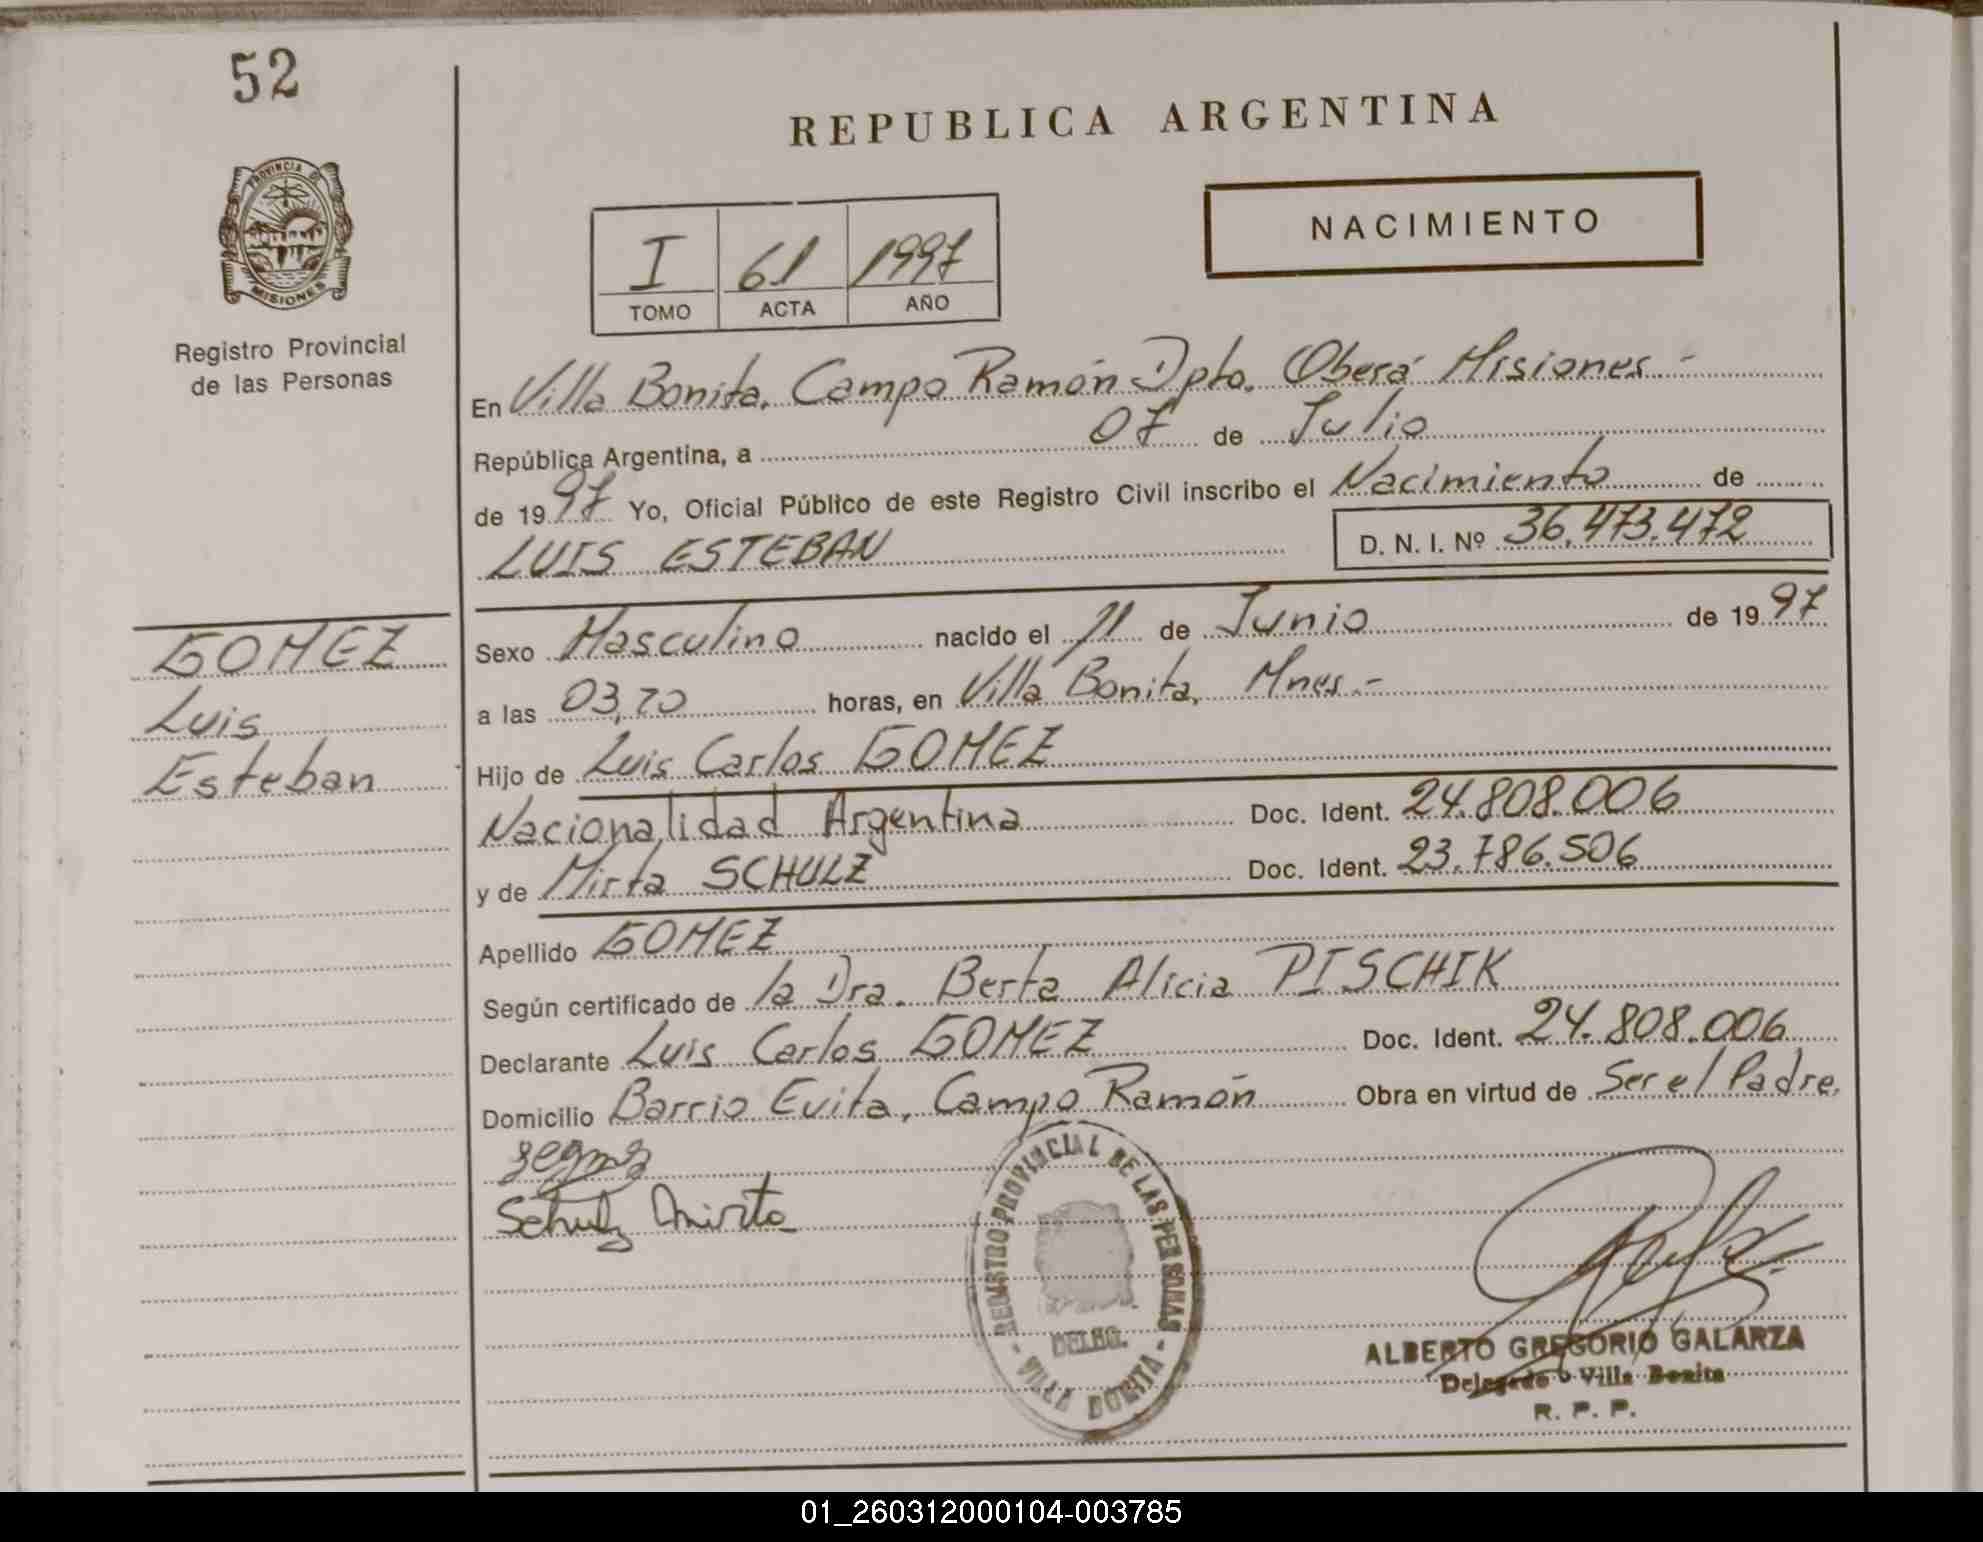 52
REPUBLICA ARGENTINA
PROVINCIA DE
MISIONES
Registro Provincial
de las Personas
I 61 1997
TOMO ACTA AÑO
NACIMIENTO
En Villa Bonita, Campo Ramón Dpto. Oberá Misiones.-
República Argentina, a 07 de Julio
de 1997 Yo, Oficial Público de este Registro Civil inscribo el Nacimiento de
LUIS ESTEBAN D. N. I. Nº 36.473.472
GOMEZ
Luis
Esteban
Sexo Masculino nacido el 11 de Junio de 1997
a las 03,20 horas, en Villa Bonita, Mnes.-
Hijo de Luis Carlos GOMEZ
Nacionalidad Argentina Doc. Ident. 24.808.006
y de Mirta SCHULZ Doc. Ident. 23.786.506
Apellido GOMEZ
Según certificado de la Dra. Berta Alicia PISCHIK
Declarante Luis Carlos GOMEZ Doc. Ident. 24.808.006
Domicilio Barrio Evita, Campo Ramón Obra en virtud de Ser el Padre.
Schulz Mirta
REGISTRO PROVINCIAL DE LAS PERSONAS
DELEG.
- VILLA BONITA -
ALBERTO GREGORIO GALARZA
Delegado Villa Bonita
R. P. P.
01_260312000104-003785